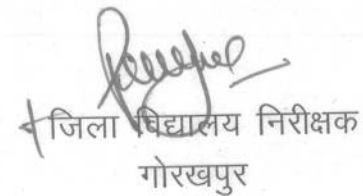 जिला विद्यालय निरीक्षक
गोरखपुर